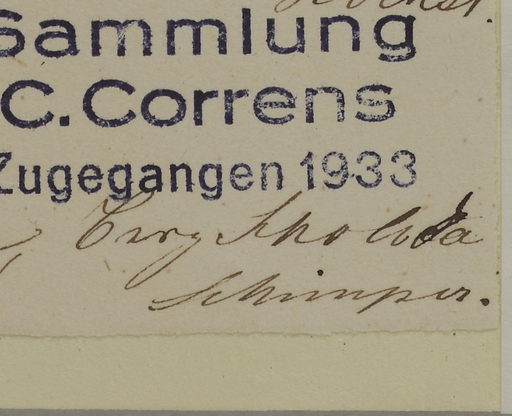 Sammlung
C. Correns
Zugegangen 1933
Berg Scholoda
Schimper.